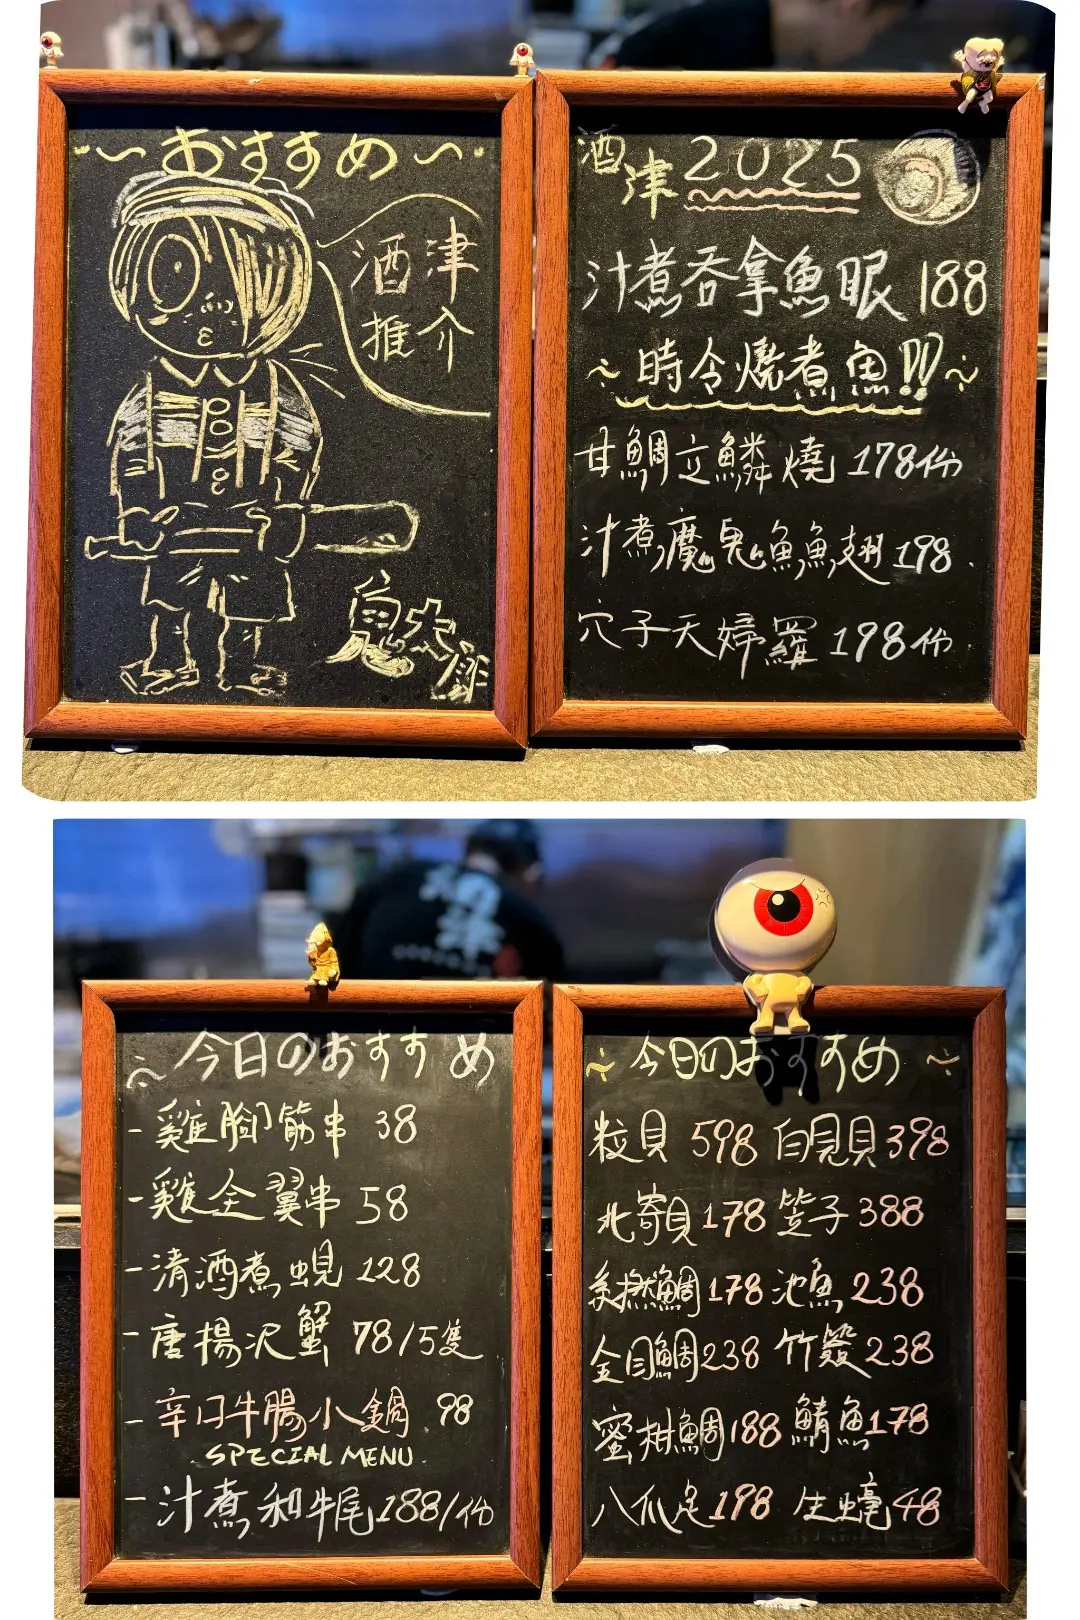 ～おすすめ～
酒津
推介
鬼太郎
酒津2025
汁煮吞拿魚眼 188
～時令燒煮魚!!～
甘鯛立鱗燒 178份
汁煮魔鬼魚魚翅 198.
穴子天婦羅 198份
酒津
～今日のおすすめ
-雞腳筋串 38
-雞全翼串 58
-清酒煮蜆 128
-唐揚沢蟹 78/5隻
-辛口牛腸小鍋 98
SPECIAL MENU.
-汁煮和牛尾188/份
～今日のおすすめ～
粒貝 598 白見貝398
北寄貝178 笠子388
178 池魚238
金目鯛238 竹簽238
蜜柑鯛188 鯖魚178
八爪足198 生蠔48